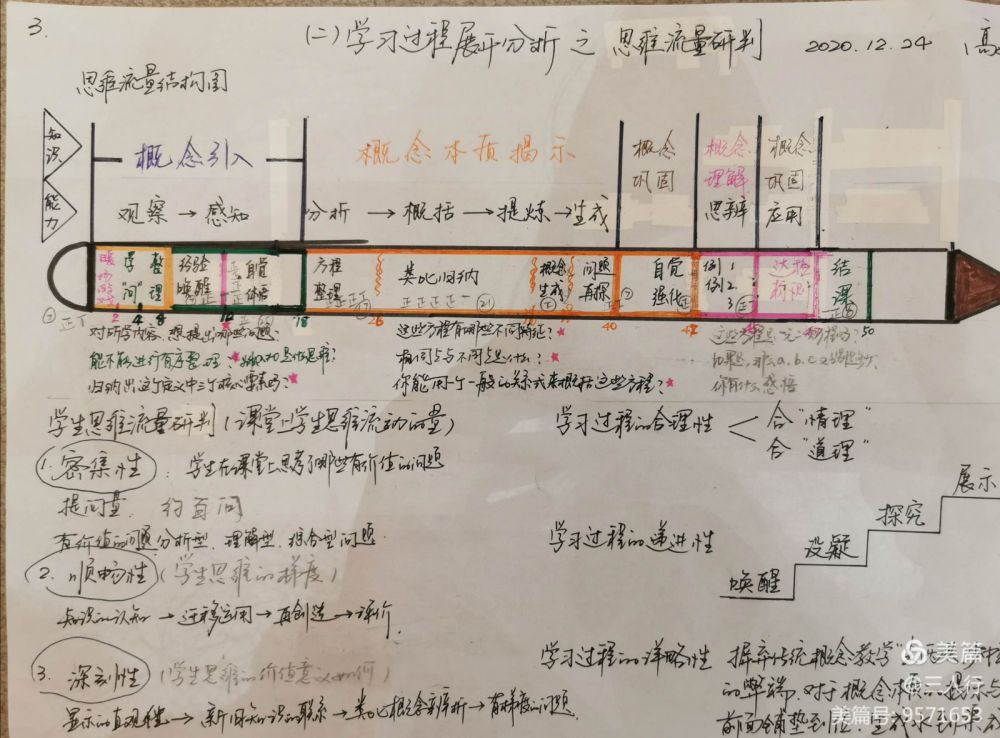 3.
(二)学习过程展开分析之思维流量研判
2020.12.24
思维流量结构图
知识
能力
概念引入
概念本质揭示
概念巩固
概念理解思辨
概念巩固应用
观察→感知
分析→概括→提炼→生成
学"问"
整理
经验唤醒
自觉体悟
方程整理
类比归纳
概念生成
问题再探
自觉强化
例1
例2
3
达标
结课
2 4 8
18
26
40
50
对所学内容,想提出哪些问题?
能不能进行有序整理?
归纳出这个定义中三个核心要素吗?
这些方程有哪些不同特征?
相同点与不同点是什么?
你能用一个一般的关系式来概括这些方程?
这些方程是一元二次方程吗?
a.b.c
你有什么感悟
学生思维流量研判(课堂上学生思维流动的量)
1.密集性:学生在课堂上思考了哪些有价值的问题
提问量:约百问
有价值的问题分析型、理解型、综合型问题
2.顺畅性(学生思维的梯度)
知识的认知→迁移运用→再创造→评价
3.深刻性(学生思维的价值意义如何)
显示的直观性→新旧知识的联系→类比概念辨析→有梯度的问题
学习过程的合理性
合"情理"
合"道理"
学习过程的递进性
唤醒
设疑
探究
展示
学习过程的详略性
摒弃传统概念教学
的弊端,对于概念本质揭示与
前面铺垫到位,生成水到渠成
美篇
三行
美篇号:9571653